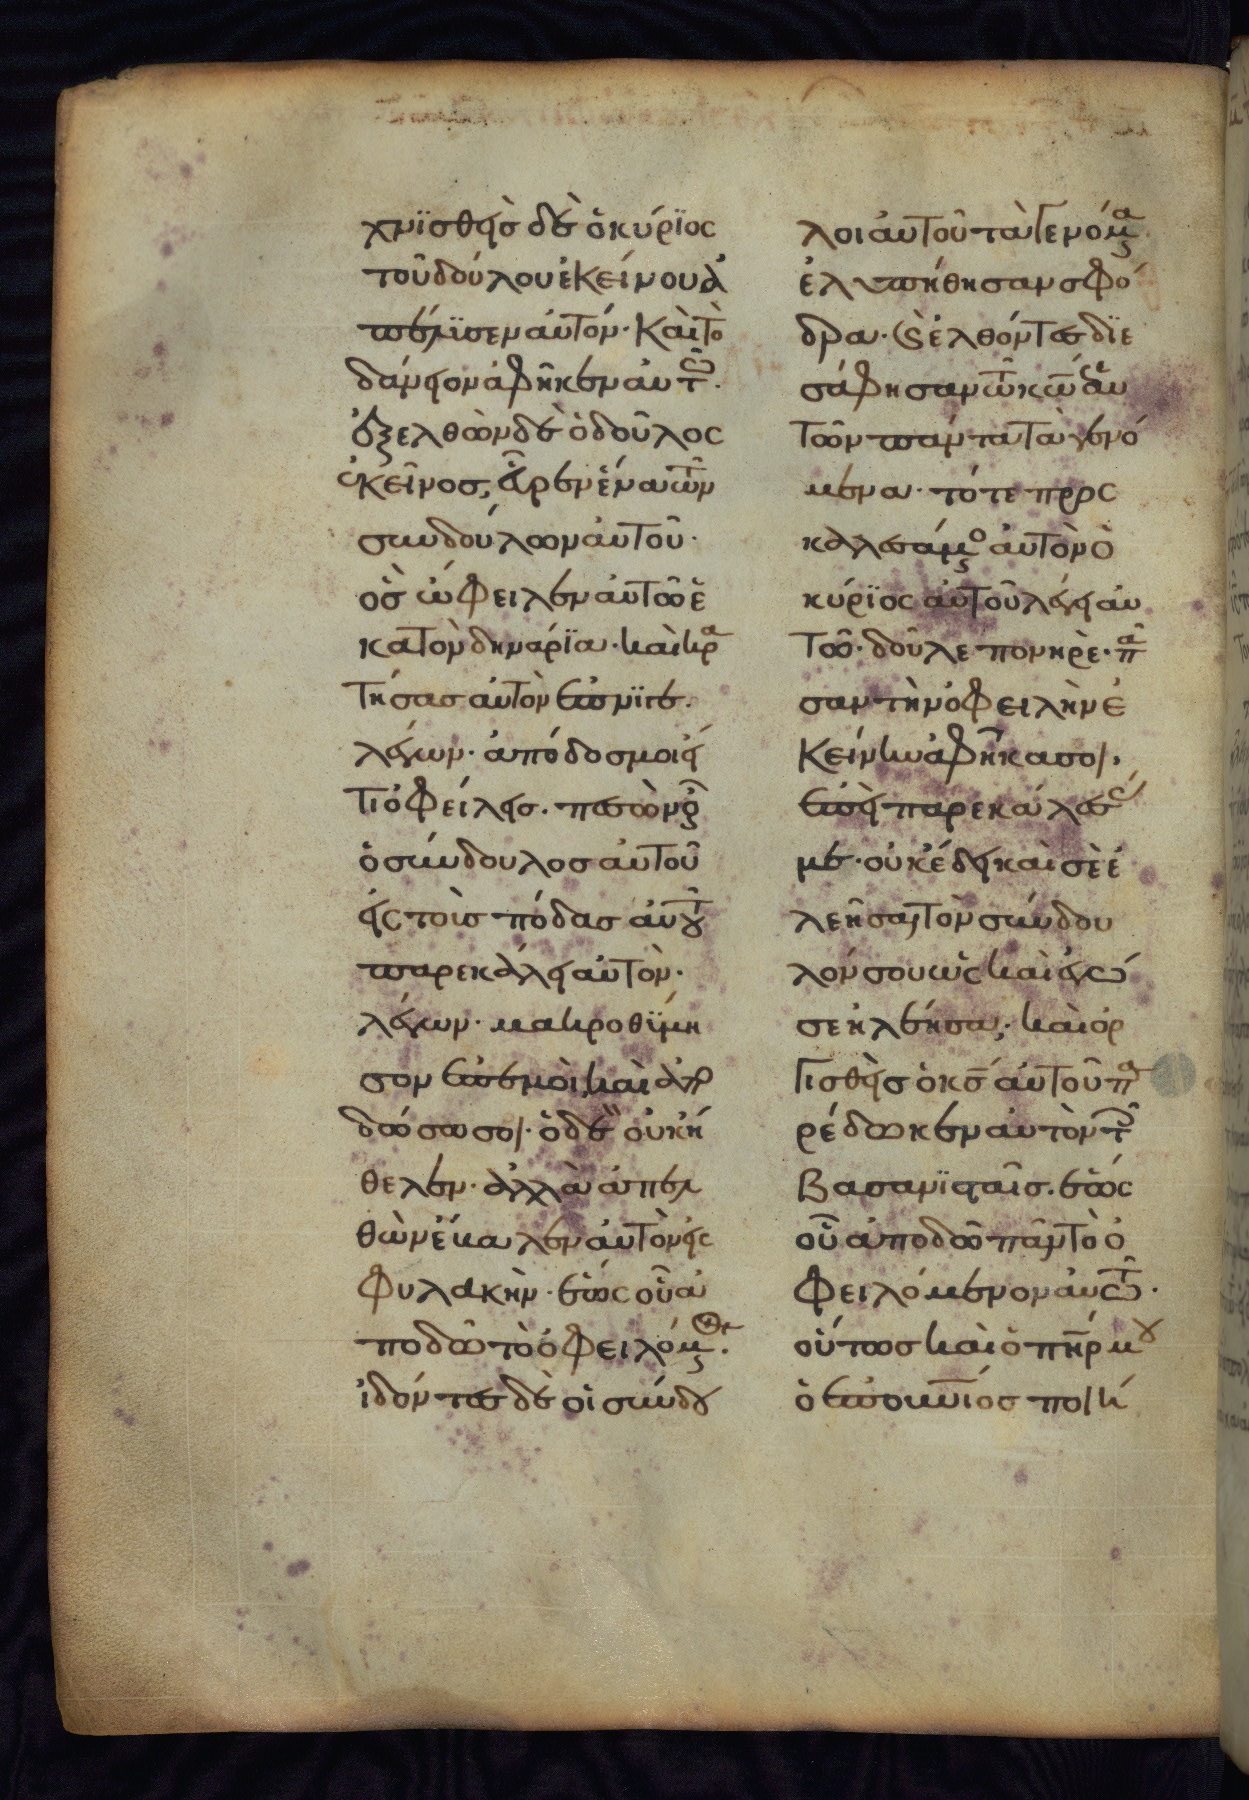 χνϊσθεὶς δὲ ὁ κύρϊος
τοῦ δούλου ἐκείνου ἀ
πέλϊσεν αὐτόν· καὶ τὸ
δάνειον ἀφῆκεν αὐτῶ·
ἐξελθὼν δὲ ὁ δοῦλος
ἐκεῖνος, εὗρεν ἕνα τῶν
συνδούλων αὐτοῦ·
ὃς ὤφειλεν αὐτῶ ἑ
κατὸν δηνάρϊα· καὶ κρα
τήσας αὐτὸν ἔπνϊγε·
λέγων· ἀπόδος μοι εἴ
τι ὀφείλεις· πεσὼν οὖν
ὁ σύνδουλος αὐτοῦ
εἰς τοὺς πόδας αὐτοῦ
παρεκάλει αὐτὸν·
λέγων· μακροθύμη
σον ἐπ' ἐμοὶ καὶ ἀπο
δώσω σοι· ὁ δὲ οὐκ ἤ
θελεν· ἀλλὰ ἀπελ
θὼν ἔβαλεν αὐτὸν εἰς
φυλακὴν· ἕως οὗ ἀ
ποδῶ τὸ ὀφειλόμενον·
ἰδόντες δὲ οἱ σύνδου
λοι αὐτοῦ τὰ γενόμενα
ἐλυπήθησαν σφό
δρα· καὶ ἐλθόντες δϊε
σάφησαν τῶ κω ἑαυ
τῶν πάντα τὰ γενό
μενα· τότε προς
καλεσάμενος αὐτὸν ὁ
κύρϊος αὐτοῦ λέγει αυ
τῶ· δοῦλε πονηρὲ· πᾶ
σαν τὴν ὀφειλὴν ἐ
κείνην ἀφῆκα σοι·
ἐπεὶ παρεκάλεσάς
με· οὐκ ἔδει καὶ σὲ ἐ
λεῆσαι τὸν σύνδου
λόν σου ὡς καὶ ἐγώ
σε ἠλέησα; καὶ ὀρ
γισθεὶς ὁ κς αὐτοῦ πα
ρέδωκεν αὐτὸν τοῖς
βασανϊσταῖς· ἕως
οὗ ἀποδῶ πᾶν τὸ ὀ
φειλόμενον αὐτῶ·
οὕτως καὶ ὁ πηρ μου
ὁ ἐπουνιος ποιή